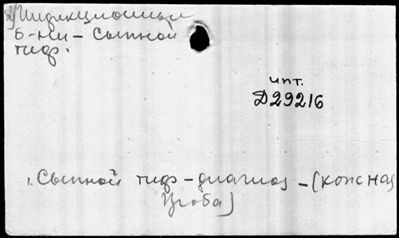 Инфекционные
б-ни - Сыпной
тиф.
инт.
Д29216
1. Сыпной тиф - диагноз - (кожная
проба)